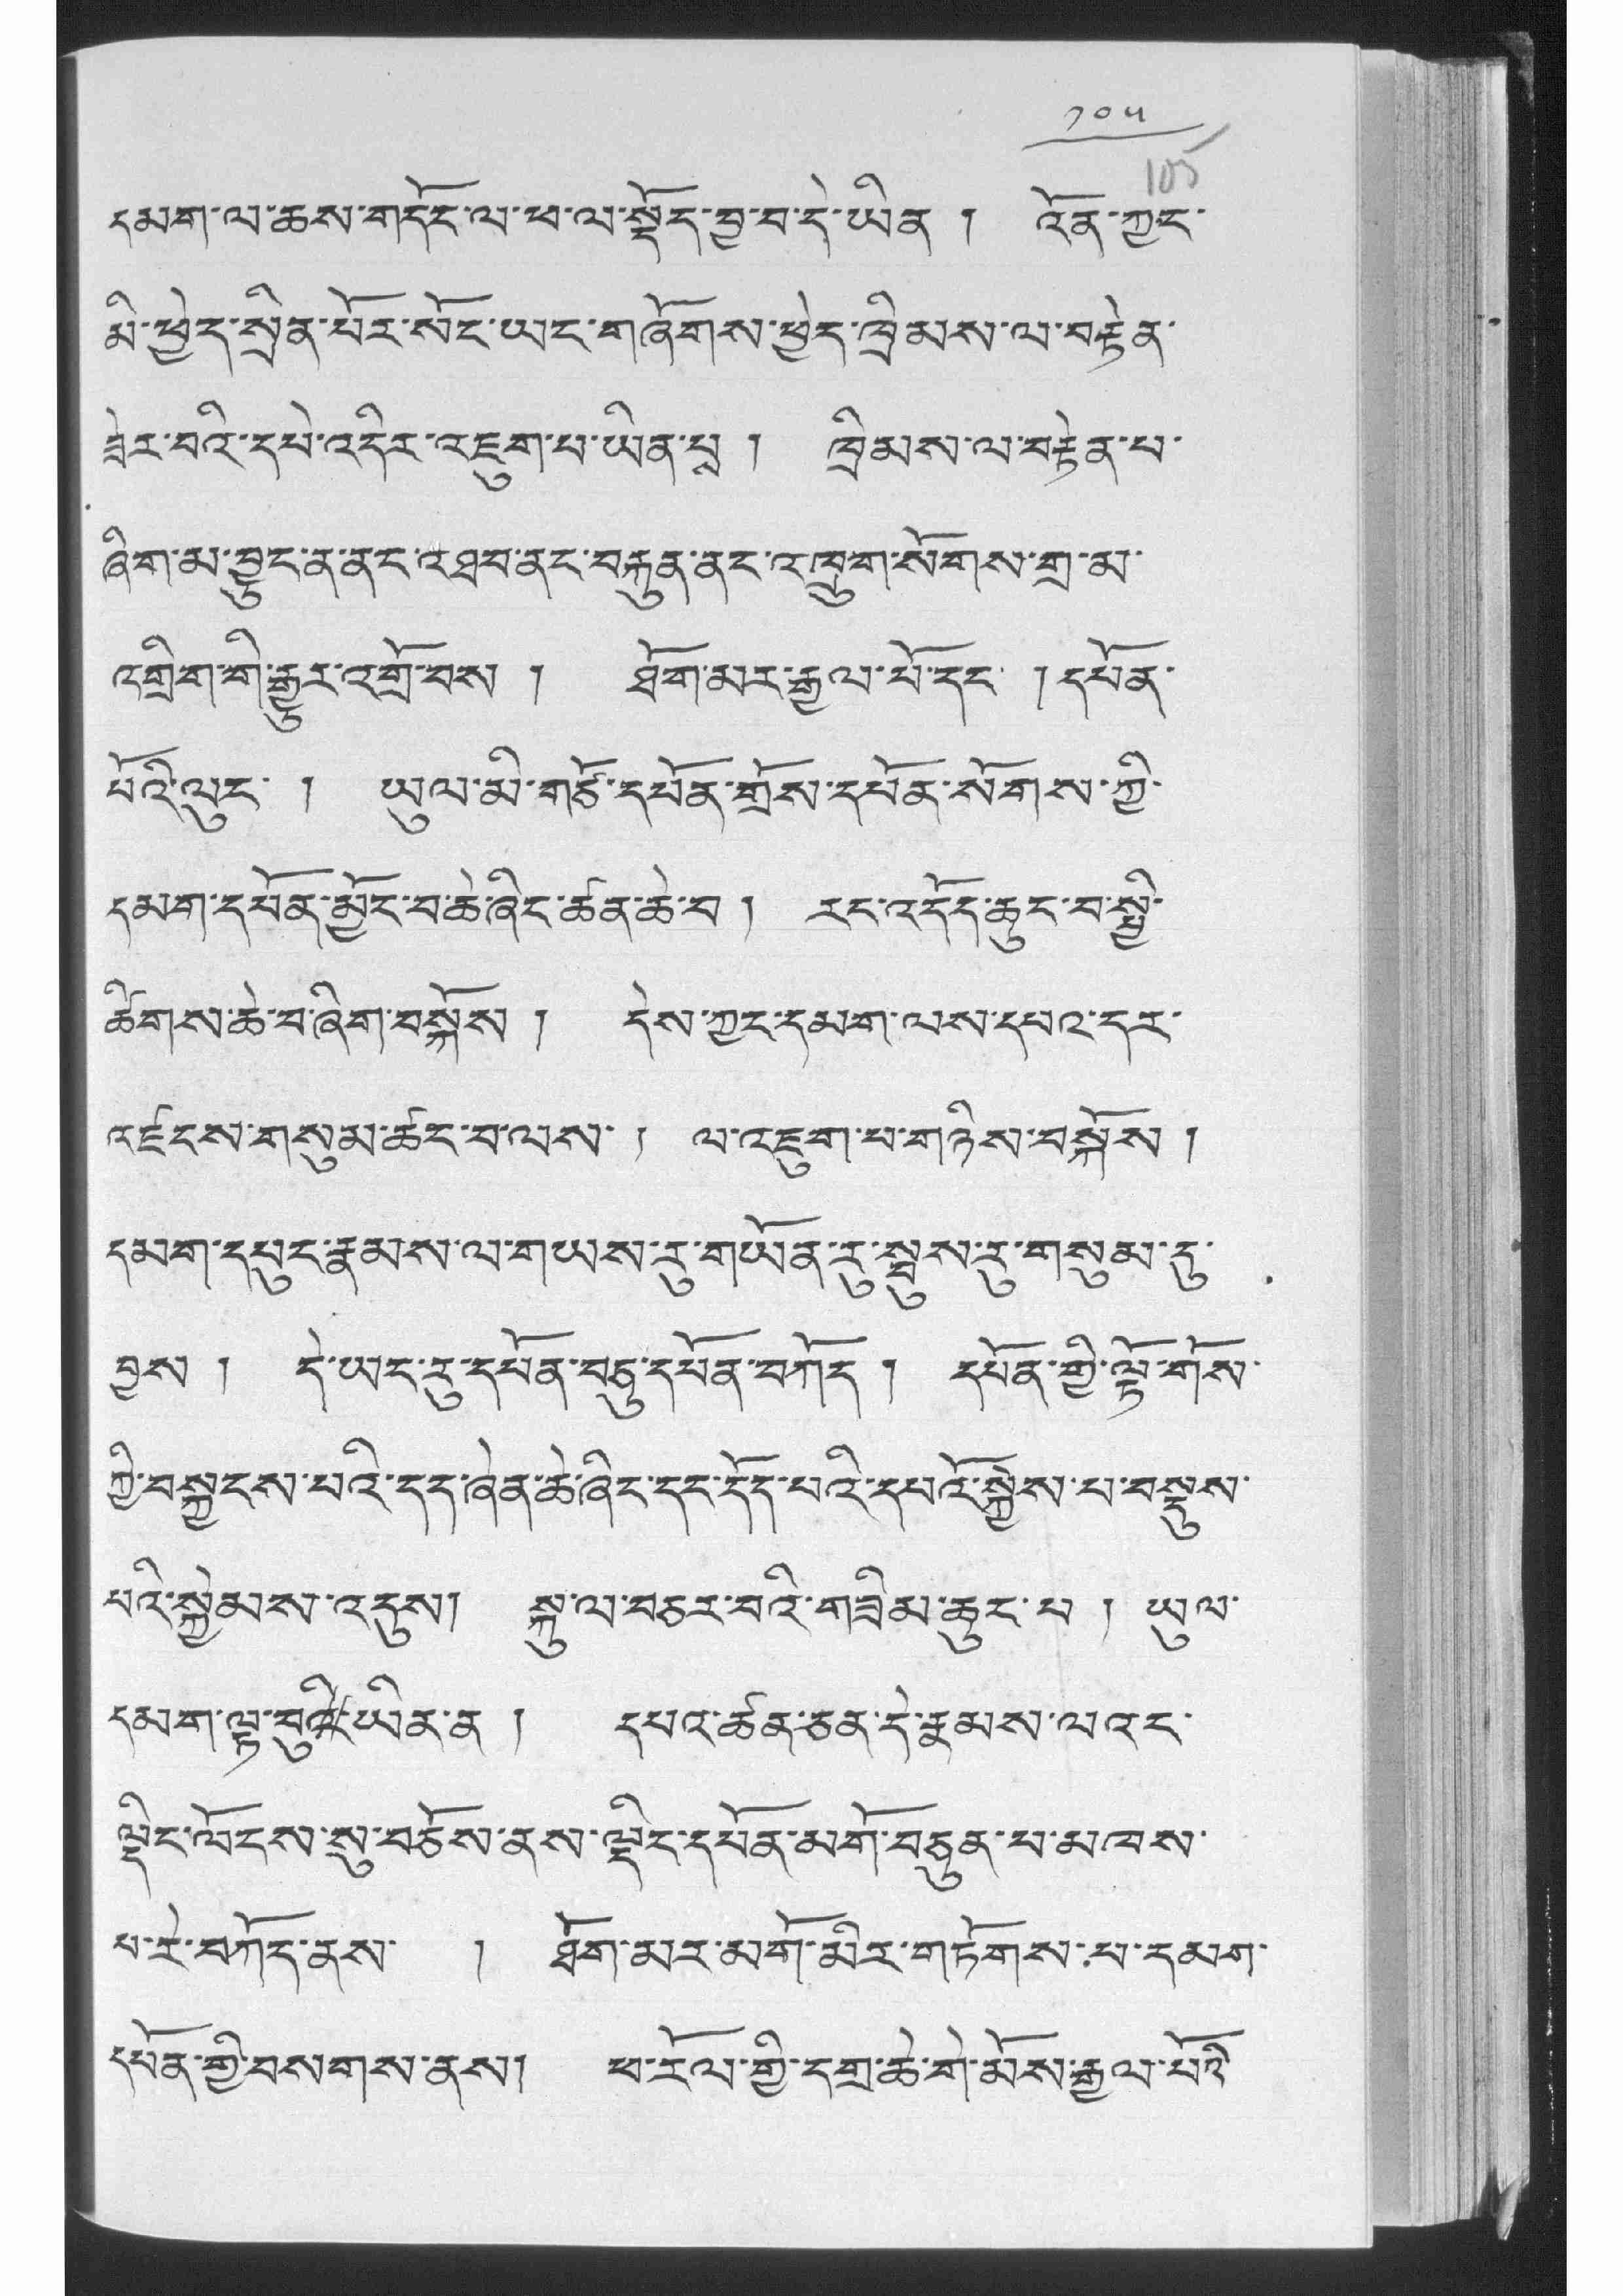 ༡༠༥
105
དམག་ལ་ཆས་གདོང་ལ་ཕ་ལ་སྡོད་བྱ་བ་དེ་ཡིན །  འོན་ཀྱང་
མི་ཕྱེད་སྲིན་པོར་སོང་ཡང་གཞོགས་ཕྱེད་ཁྲིམས་ལ་བརྟེན་
ཟེར་བའི་དཔེ་འདིར་འཇུག་པ་ཡིན་པྲ །  ཁྲིམས་ལ་བརྟེན་པ་
ཞིག་མ་བྱུང་ན་ནང་འཐབ་ནང་བརྐུན་ནང་འཁྲུག་སོགས་གྲ་མ་
འགྲིག་གི་རྒྱུར་འགྲོ་བས །  ཐོག་མར་རྒྱལ་པོ་དང་ །དཔོན་
པོའི་ལུང་ །  ཡུལ་མི་གཙོ་དཔོན་གྲོས་དཔོན་སོགས་ཀྱི་
དམག་དཔོན་མྱོང་བ་ཆེ་ཞིང་ཚན་ཆེ་བ །  རང་འདོད་ཆུང་བ་སྤྱི་
ཚིགས་ཆེ་བ་ཞིག་བསྐོས །  དེས་ཀྱང་དམག་ལས་དཔའ་དར་
འཛངས་གསུམ་ཚང་བ་ལས་ །  ལ་འཇུག་པ་གཉིས་བསྐོས །
དམག་དཔུང་རྣམས་ལ་གཡས་རུ་གཡོན་རུ་སྦུས་རུ་གསུམ་དུ་
བྱས །  དེ་ཡང་རུ་དཔོན་བཅུ་དཔོན་བཀོད །  དཔོན་གྱི་ལྟོ་གོས་
ཀྱི་བསྐྱངས་པའི་དད་ཞེན་ཆེ་ཞིང་དང་དོད་པའི་དཔའོ་སྐྱེས་པ་བསྡུས་
པའི་སྐྱེམས་འདུས།  སྐུ་ལ་བཅར་བའི་གཟིམ་ཆུང་པ །  ཡུལ་
དམག་ལྟ་བུའི་ཡིན་ན །  དཔའ་ཚན་ཅན་དེ་རྣམས་ལ་འང་
ལྡིང་ལོངས་སུ་བཅོས་ནས་ལྡིང་དཔོན་མགོ་བཙུན་པ་མཁས་
པ་རེ་བཀོད་ནས་ །  ཐོག་མར་མགོ་མིར་གཏོགས་པ་དམག་
དཔོན་གྱི་བསགས་ནས།  ཕ་རོལ་གྱི་དགྲ་ཆེ་གེ་མོས་རྒྱལ་པོའི